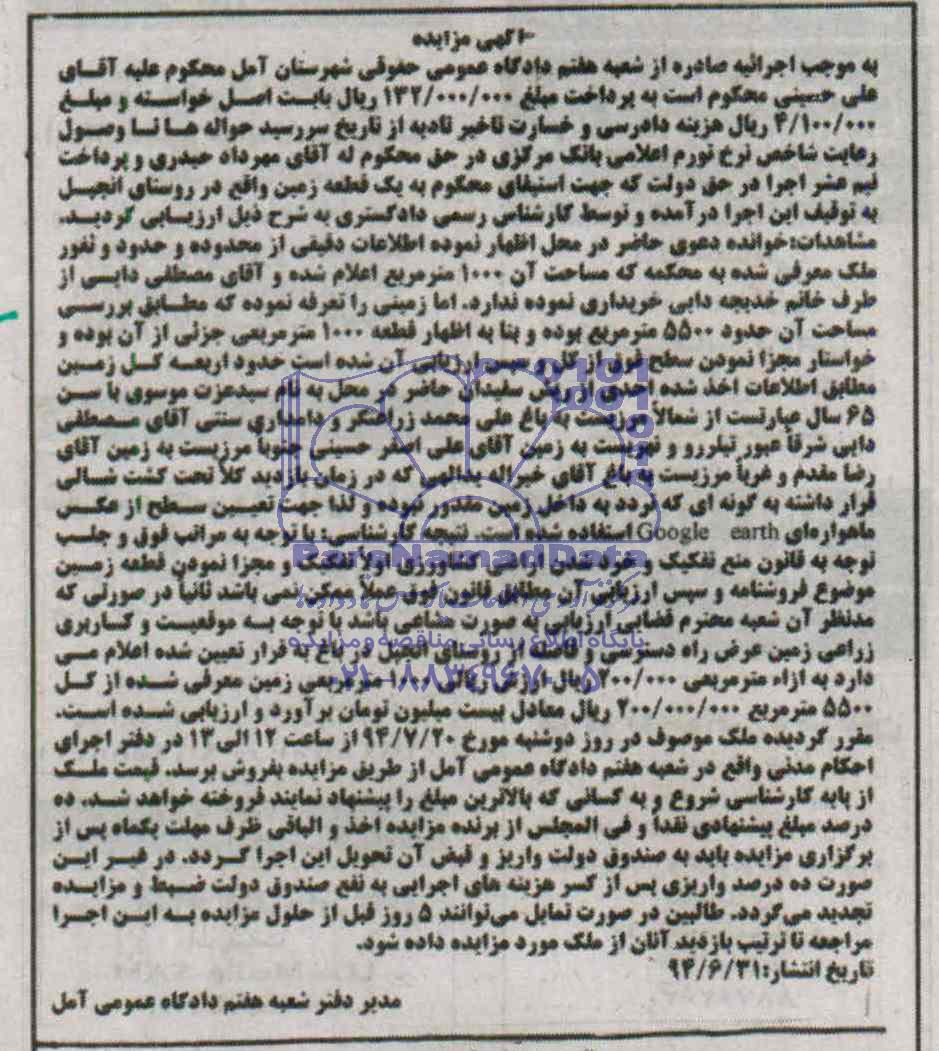 آگهی مزایده
به موجب اجرائیه صادره از شعبه هفتم دادگاه عمومی حقوقی شهرستان آمل محکوم علیه آقای
علی حسینی محکوم است به پرداخت مبلغ ۱۳۲/۰۰۰/۰۰۰ ریال بابت اصل خواسته و مبلغ
۴/۱۰۰/۰۰۰ ریال هزینه دادرسی و خسارت تاخیر تادیه از تاریخ سررسید حواله ها تا وصول
رعایت شاخص نرخ تورم اعلامی بانک مرکزی در حق محکوم له آقای مهرداد حیدری و پرداخت
نیم عشر اجرا در حق دولت که جهت استیفای محکوم به یک قطعه زمین واقع در روستای انجیل
به توقیف این اجرا درآمده و توسط کارشناس رسمی دادگستری به شرح ذیل ارزیابی گردید.
مشاهدات:خوانده دعوی حاضر در محل اظهار نموده اطلاعات دقیقی از محدوده و حدود و ثغور
ملک معرفی شده به محکمه که مساحت آن ۱۰۰۰ مترمربع اعلام شده و آقای مصطفی دایی از
طرف خانم خدیجه دایی خریداری نموده ندارد. اما زمینی را تعرفه نموده که مطابق بررسی
مساحت آن حدود ۵۵۰۰ مترمربع بوده و بنا به اظهار قطعه ۱۰۰۰ مترمربعی جزئی از آن بوده و
خواستار مجزا نمودن سطح فوق از کل و سپس ارزیابی آن شده است حدود اربعه کل زمین
مطابق اطلاعات اخذ شده احدی از ریش سفیدان حاضر در محل به نام سیدعزت موسوی با سن
۶۵ سال عبارتست از شمالاً مرزیست به باغ علی محمد زراعتگر و دامداری سنتی آقای مصطفی
دایی شرقاً عبور تیلررو و نهریست به زمین آقای علی اصغر حسینی جنوباً مرزیست به زمین آقای
رضا مقدم و غرباً مرزیست به باغ آقای خیراله یدالهی که در زمان بازدید کلاً تحت کشت شالی
قرار داشته به گونه ای که تردد به داخل زمین مقدور نبوده و لذا جهت تعیین سطح از عکس
ماهواره‌ای Google earth استفاده شده است. نتیجه کارشناسی: با توجه به مراتب فوق و جلب
توجه به قانون منع تفکیک و خرد شدن اراضی کشاورزی اولاً تفکیک و مجزا نمودن قطعه زمین
موضوع فروشنامه و سپس ارزیابی آن مطابق قانون فوق عملاً ممکن نمی باشد ثانیاً در صورتی که
مدنظر آن شعبه محترم قضایی ارزیابی به صورت مشاعی باشد با توجه به موقعیت و کاربری
زراعی زمین عرض راه دسترسی و فاصله از روستای انجیل و باغ به قرار تعیین شده اعلام می
دارد به ازاء مترمربعی ۲۰۰/۰۰۰ ریال ارزش ریالی ۱۰۰۰ مترمربعی زمین معرفی شده از کل
۵۵۰۰ مترمربع ۲۰۰/۰۰۰/۰۰۰ ریال معادل بیست میلیون تومان برآورد و ارزیابی شده است.
مقرر گردیده ملک موصوف در روز دوشنبه مورخ ۹۴/۷/۲۰ از ساعت ۱۲ الی ۱۳ در دفتر اجرای
احکام مدنی واقع در شعبه هفتم دادگاه عمومی آمل از طریق مزایده بفروش برسد. قیمت ملک
از پایه کارشناسی شروع و به کسانی که بالاترین مبلغ را پیشنهاد نمایند فروخته خواهد شد. ده
درصد مبلغ پیشنهادی نقداً و فی المجلس از برنده مزایده اخذ و الباقی ظرف مهلت یکماه پس از
برگزاری مزایده باید به صندوق دولت واریز و قبض آن تحویل این اجرا گردد. در غیر این
صورت ده درصد واریزی پس از کسر هزینه های اجرایی به نفع صندوق دولت ضبط و مزایده
تجدید می‌گردد. طالبین در صورت تمایل می‌توانند ۵ روز قبل از حلول مزایده به این اجرا
مراجعه تا ترتیب بازدید آنان از ملک مورد مزایده داده شود.
تاریخ انتشار:۹۴/۶/۳۱
مدیر دفتر شعبه هفتم دادگاه عمومی آمل
ParsNamadData
پایگاه اطلاع رسانی مناقصه و مزایده
۰۲۱-۸۸۳۴۹۶۷۰-۵